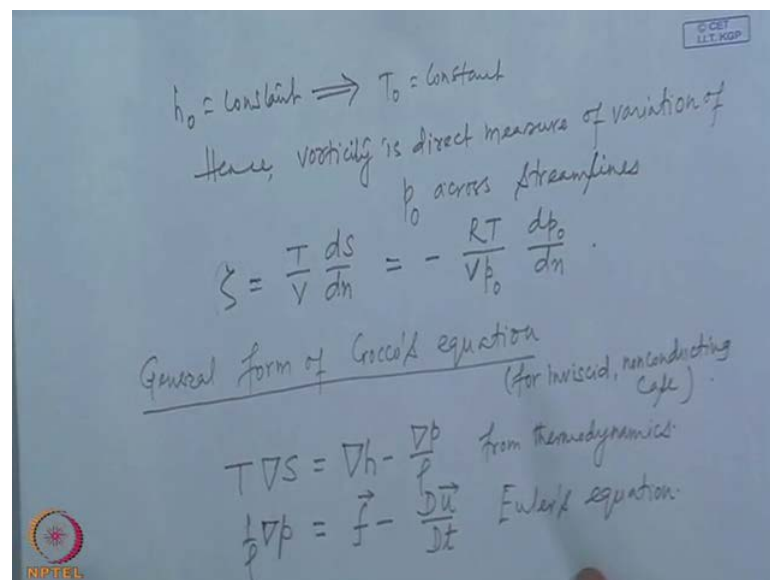 © CET
I.I.T. KGP
h₀ = Constant ⟹ T₀ = Constant
Hence, vorticity is direct measure of variation of
p₀ across streamlines
ζ = T/V dS/dn = - RT/Vp₀ dp₀/dn .
General form of Crocco's equation
(for inviscid, nonconducting
case).
T∇S = ∇h - ∇p/ρ from thermodynamics.
1/ρ ∇p = f⃗ - Du⃗/Dt Euler's equation.
NPTEL